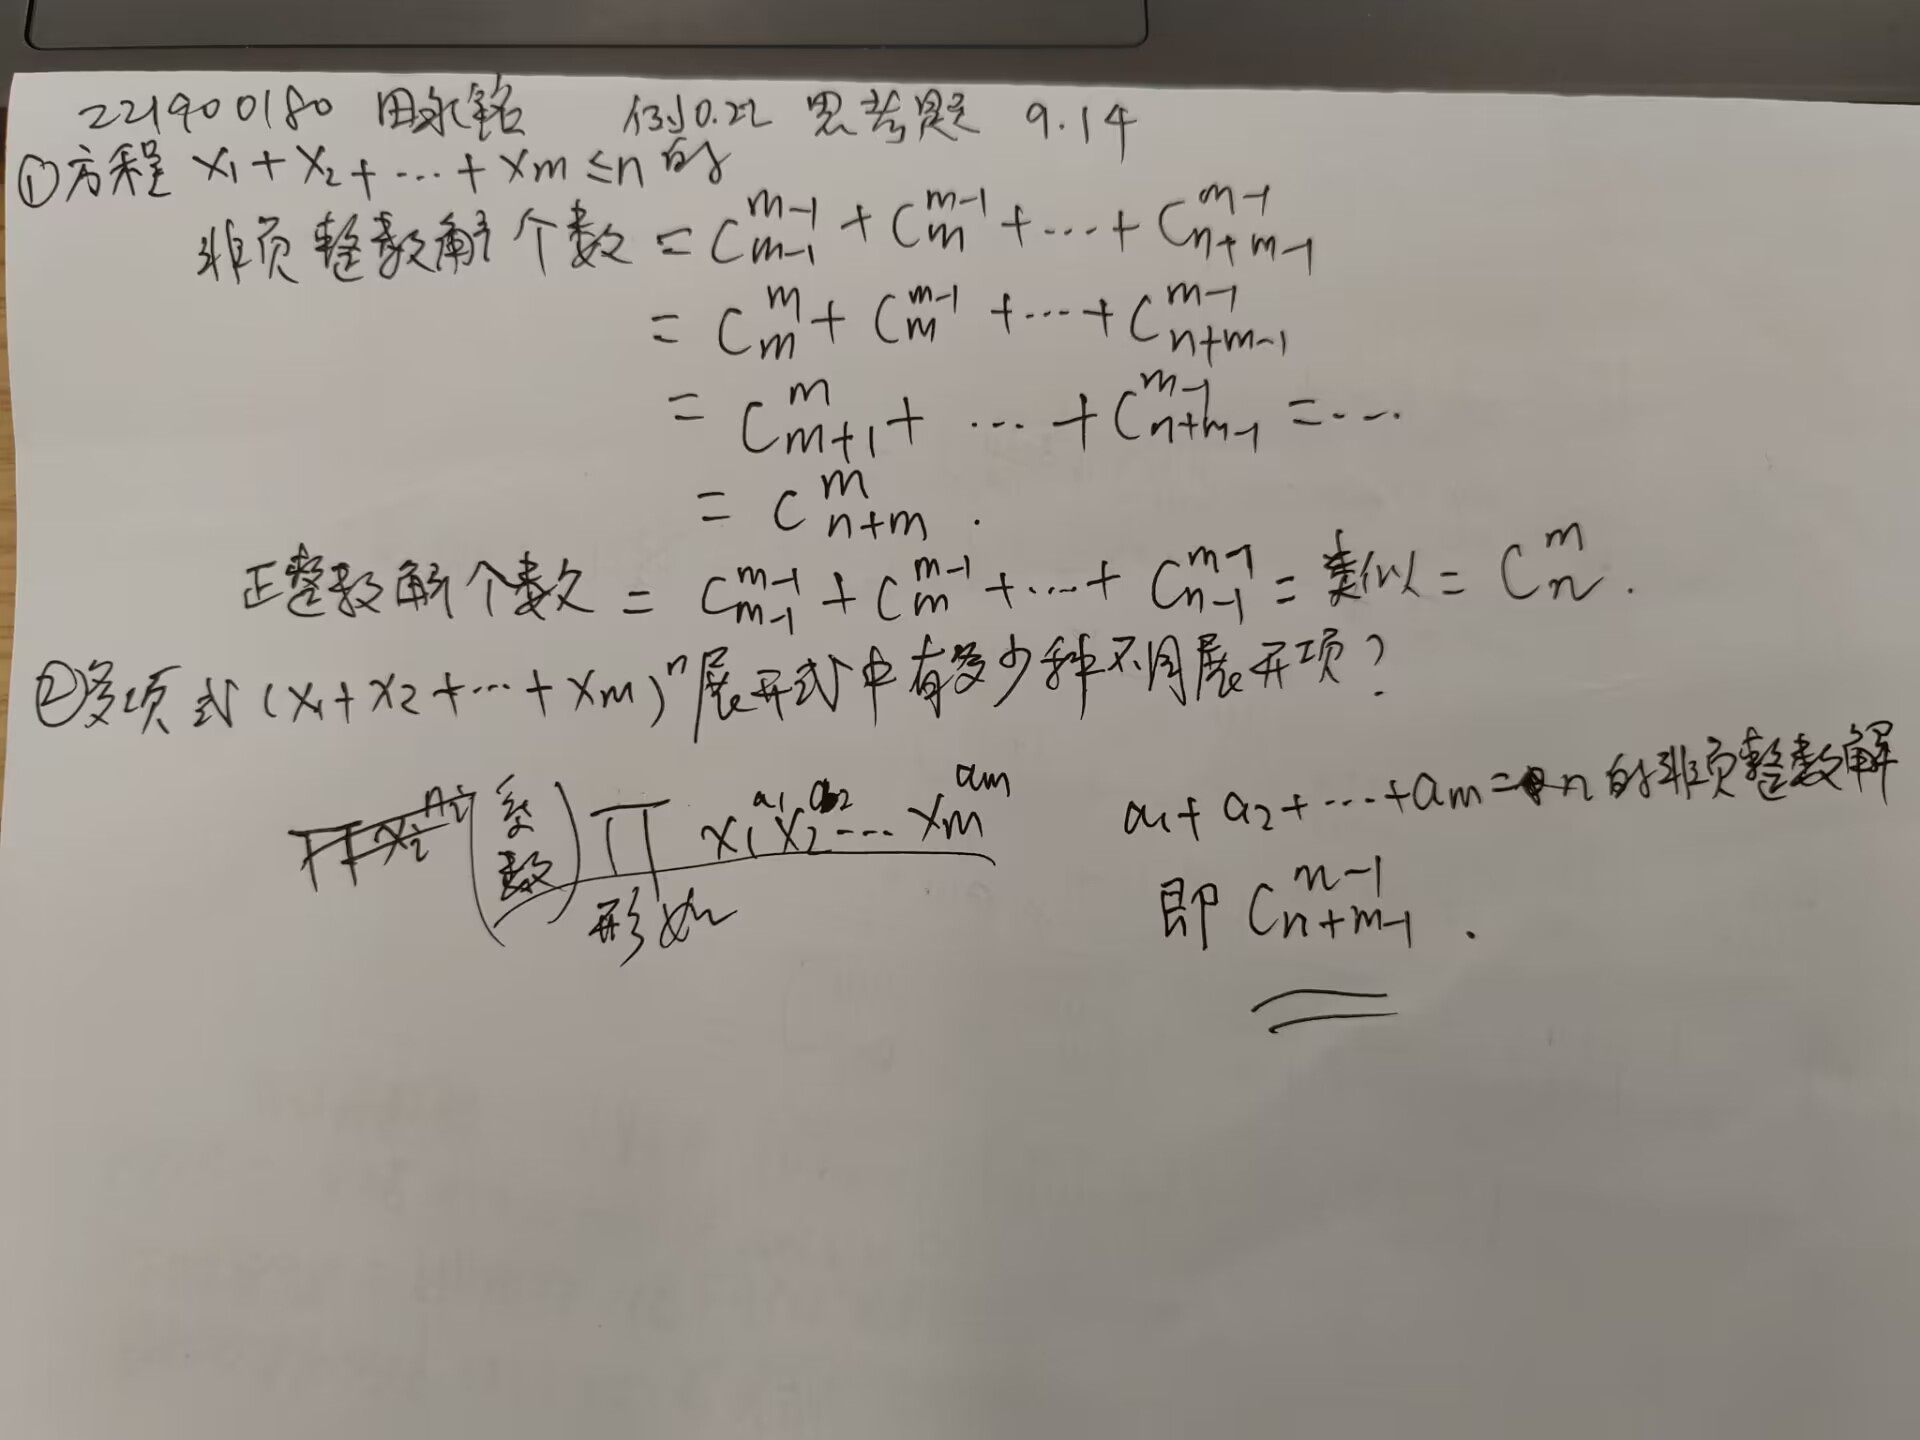 221900180 田永铭 例0.22 思考题 9.14
①方程 x₁+x₂+…+xm≤n 的
非负整数解个数 = C_{m-1}^{m-1} + C_{m}^{m-1} +…+ C_{n+m-1}^{m-1}
= C_{m}^{m} + C_{m}^{m-1} +…+ C_{n+m-1}^{m-1}
= C_{m+1}^{m} + … + C_{n+m-1}^{m-1} = …
= C_{n+m}^{m} .
正整数解个数 = C_{m-1}^{m-1} + C_{m}^{m-1} +…+ C_{n-1}^{m-1} = 类似 = C_{n}^{m} .
②多项式 (x₁+x₂+…+xm)^n 展开式中有多少种不同展开项?
∏ x_i^{n_i} (系数) ∏ x₁^{a₁} x₂^{a₂} … xm^{am} a₁+a₂+…+am=n 的非负整数解
形如 即 C_{n+m-1}^{n-1} .